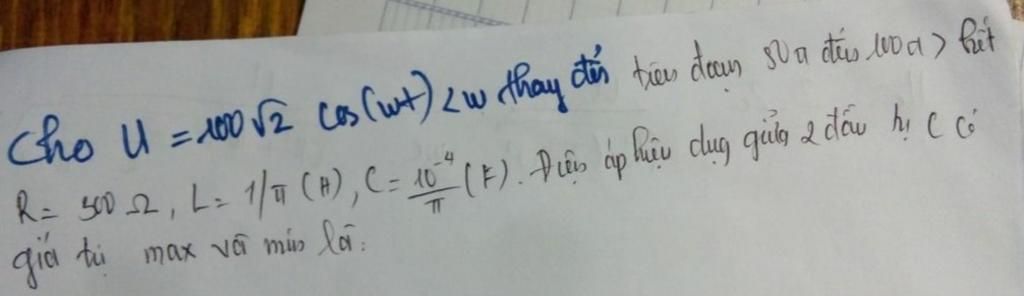 Cho U = 100√2 cos(wt) <w thay đổi trên đoạn 50π đến 100π> biết
R = 300 Ω, L = 1/π (H), C = 10⁻⁴/π (F). Điện áp hiệu dụg giữa 2 đầu tụ C có
giá trị max và min là: